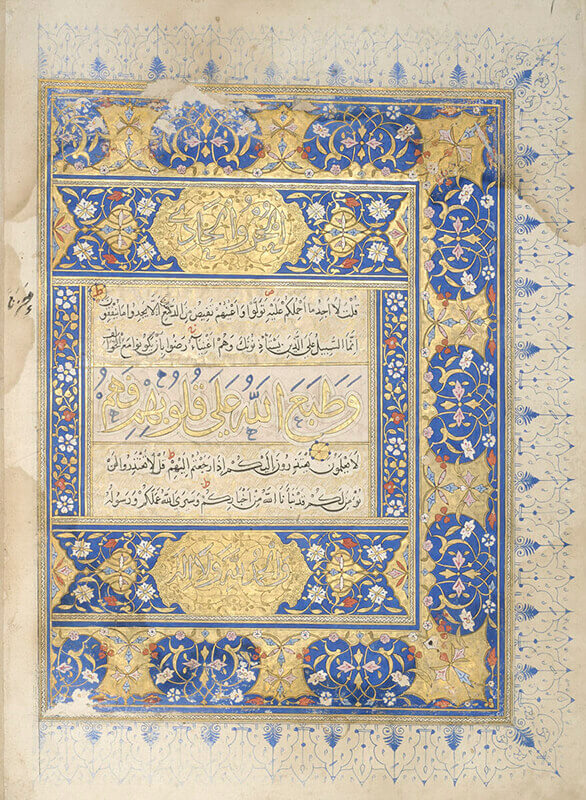 الجزو الحادي
قلت لا اجد ما احملكم عليه تولوا واعينهم تفيض من الدمع حزنا الا يجدوا ما ينفقون
انما السبيل على الذين يستأذنونك وهم اغنياء رضوا بان يكونوا مع الخوالف
وَطَبَعَ اللهُ عَلَى قُلُوبِهِمْ فَهُمْ
لا يعلمون يعتذرون اليكم اذا رجعتم اليهم قل لا تعتذروا لن
نؤمن لكم قد نبأنا الله من اخباركم وسيرى الله عملكم ورسوله